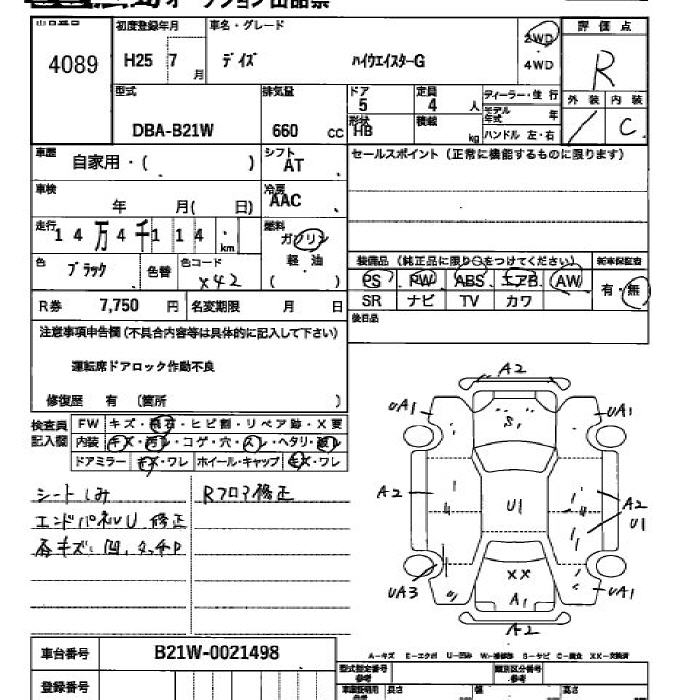 オークション出品票
出品番号 初度登録年月 車名・グレード 2WD 評価点
4089 H25 7月 デイズ ハイウエイスターG 4WD R
型式 排気量 ドア 5 定員 4人 ディーラー・並行 外装 内装
DBA-B21W 660 cc 形状 HB 積載 kg モデル年式 年 / C
ハンドル 左・右
車歴 自家用・( ) シフト AT セールスポイント(正常に機能するものに限ります)
車検 年 月( 日) 冷房 AAC
走行 14万4千114 km 燃料 ガソリン
色 ブラック 色替 色コード X42 軽油 ( )
装備品(純正品に限り○をつけてください) 新車保証書
PS PW ABS エアB AW 有・無
SR ナビ TV カワ
R券 7,750 円 名変期限 月 日 後日品
注意事項申告欄(不具合内容等は具体的に記入して下さい)
運転席ドアロック作動不良
修復歴 有 (箇所 )
検査員記入欄 FW キズ・飛石・ヒビ割・リペア跡・X要
内装 キズ・汚レ・コゲ・穴・スレ・ヘタリ・破レ
ドアミラー キズ・ワレ ホイール・キャップ キズ・ワレ
シートしみ Rフロア修正
エンドパネルU 修正
各キズ、凹、タッチP
A2
UA1 S1 UA1
A2 U1 A2
U1
XX
UA3 A1 UA1
A2
A-キズ E-エクボ U-凹み W-補修跡 S-サビ C-腐食 XX-交換済
車台番号 B21W-0021498
型式指定番号 参考 類別区分番号 参考
登録番号 長さ 幅 高さ